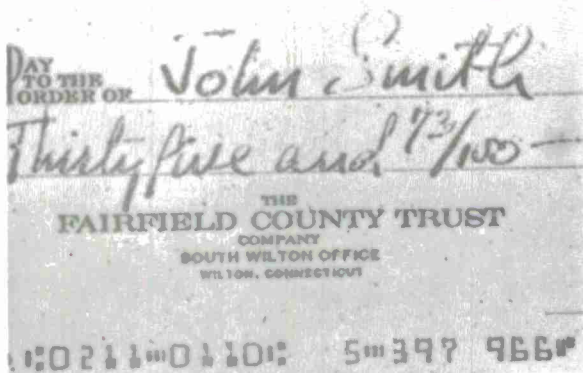 PAY
TO THE
ORDER OF John Smith
Thirty five and 73/100
THE
FAIRFIELD COUNTY TRUST
COMPANY
SOUTH WILTON OFFICE
WILTON, CONNECTICUT
⑆0211⑉0110⑆ 5⑉397 966⑈